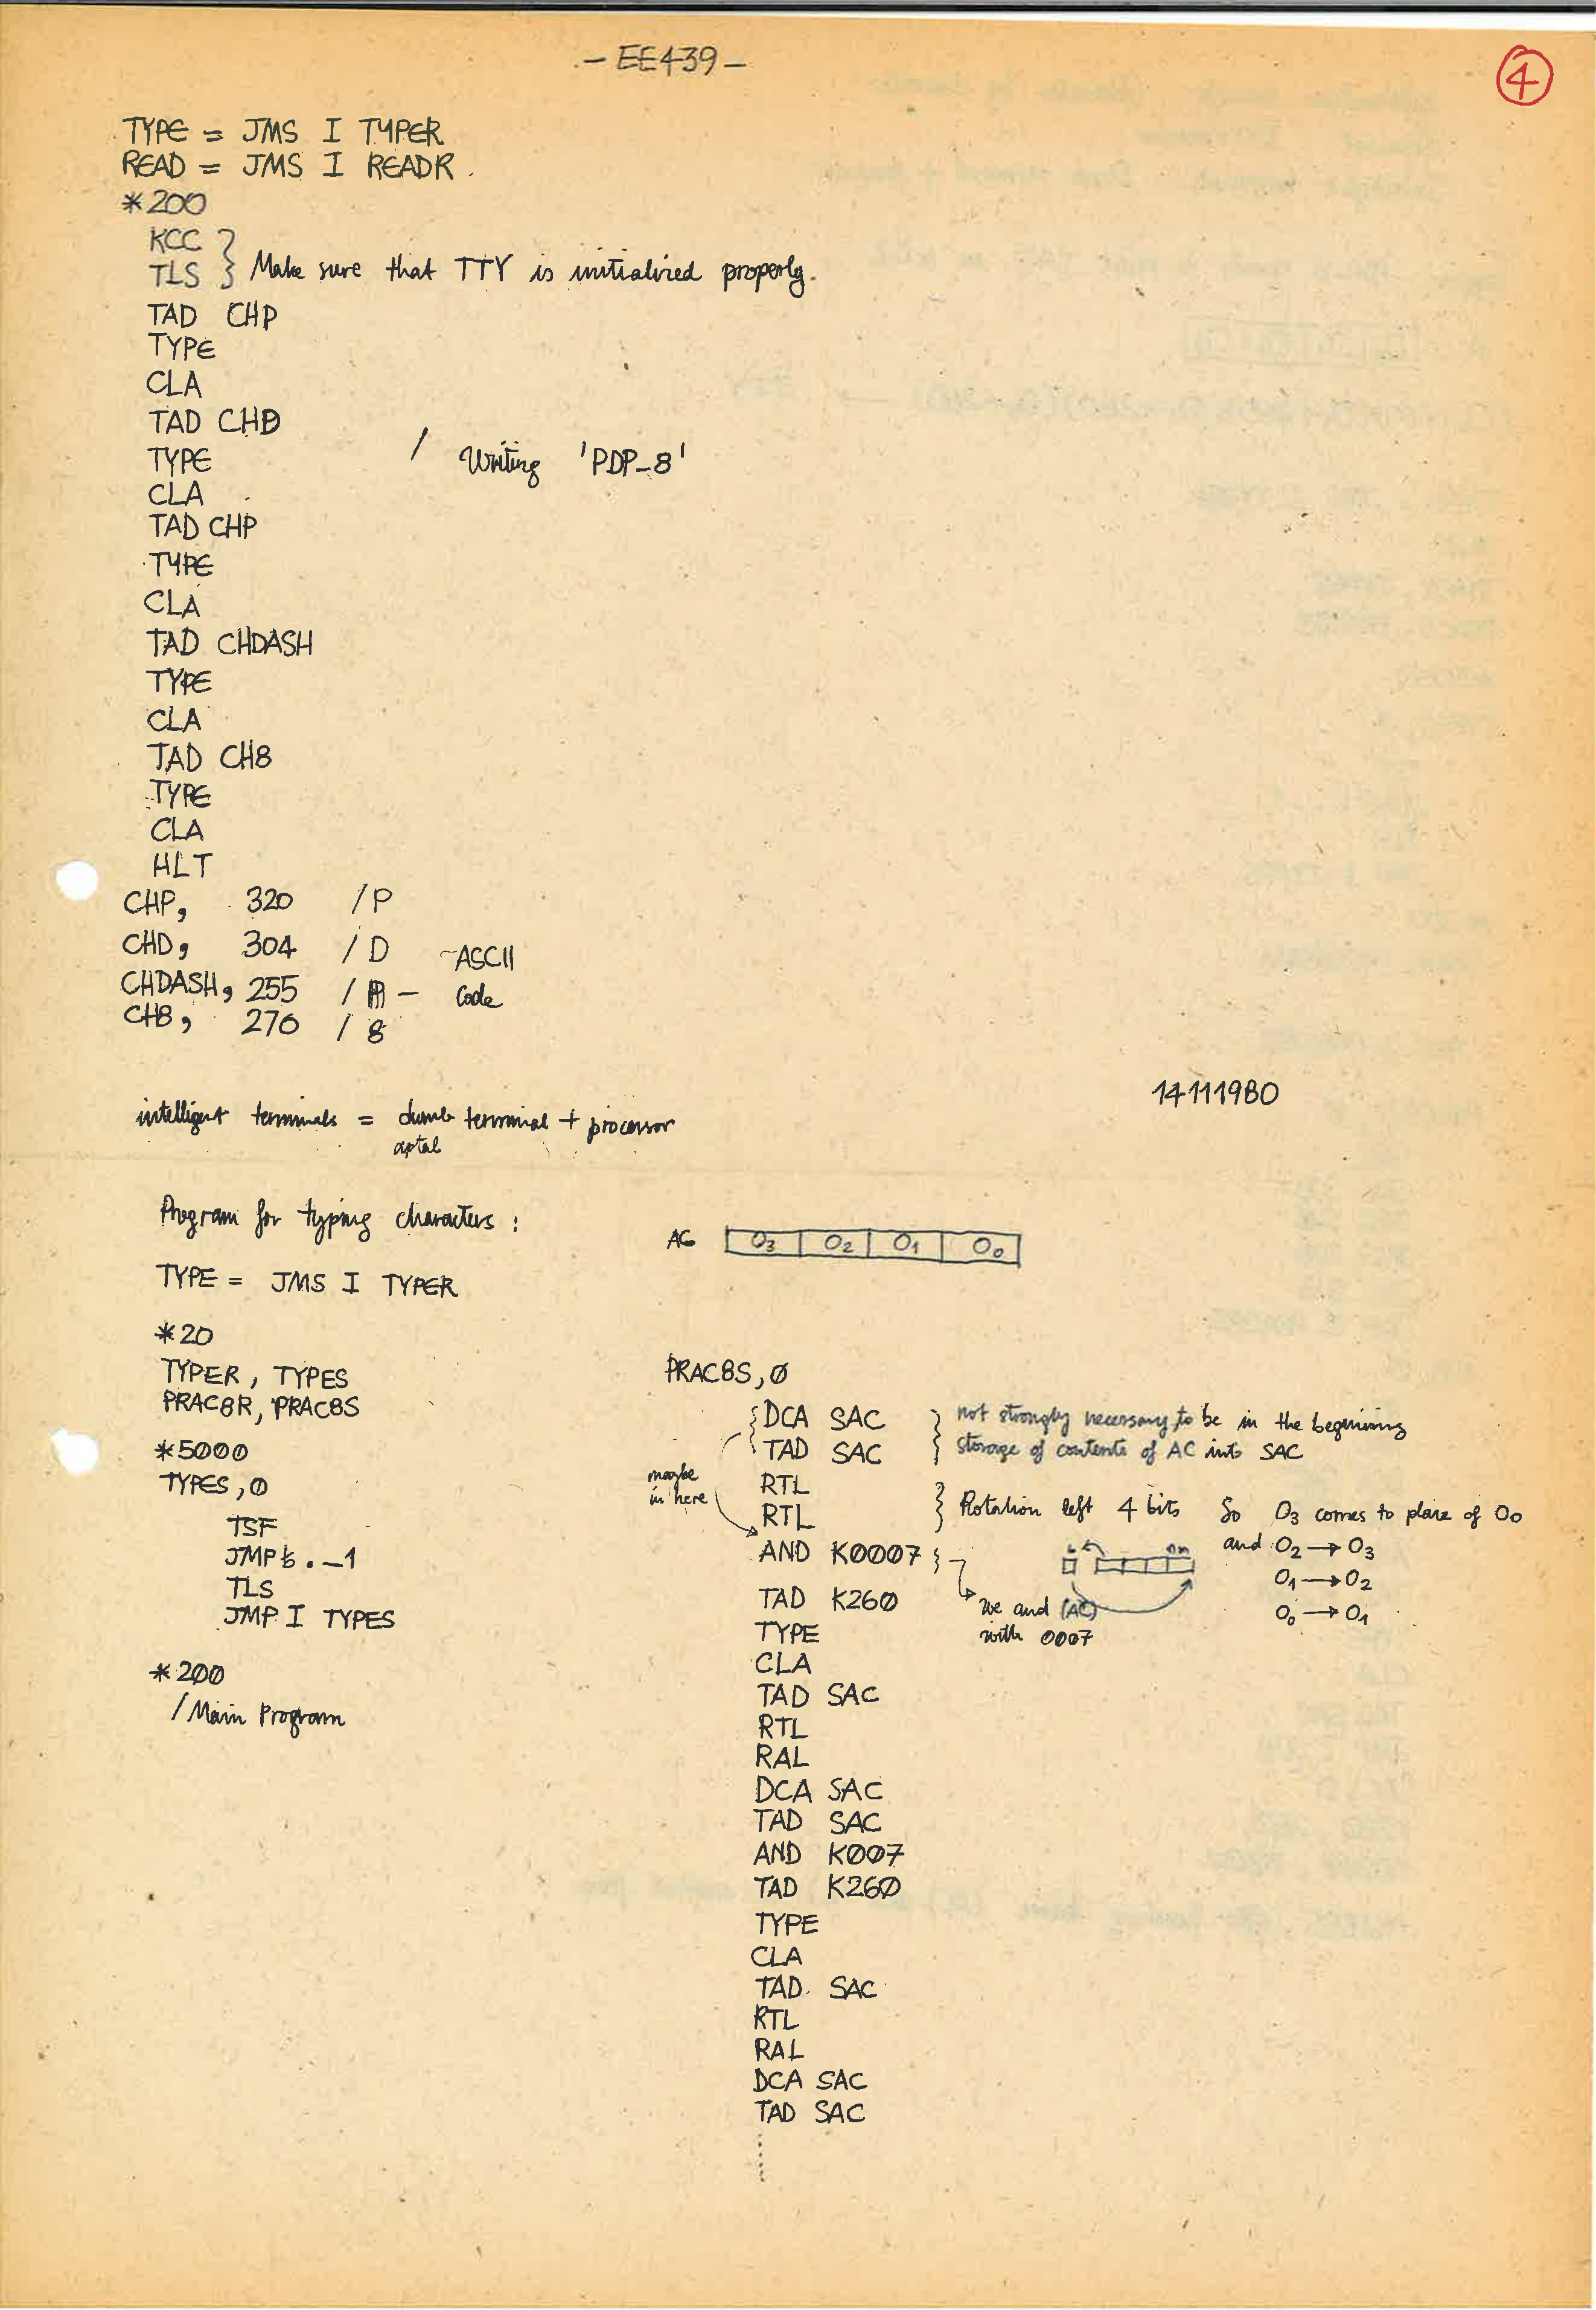 - EE439 -
4
TYPE = JMS I TYPER
READ = JMS I READR.
*200
KCC
TLS } Make sure that TTY is initialized properly.
TAD CHP
TYPE
CLA
TAD CHD
TYPE / Writing 'PDP-8'
CLA
TAD CHP
TYPE
CLA
TAD CHDASH
TYPE
CLA
TAD CH8
TYPE
CLA
HLT
CHP, 320 /P
CHD, 304 /D ASCII
CHDASH, 255 / - Code
CH8, 270 / 8
14111980
intelligent terminals = dumb terminal + processor
aptal
Program for typing characters :
AC O3 O2 O1 O0
TYPE = JMS I TYPER
*20
TYPER, TYPES
PRAC8R, PRAC8S
*5000
TYPES, 0
TSF
JMP .-1
TLS
JMP I TYPES
*200
/Main Program
PRAC8S, 0
DCA SAC } not strongly necessary to be in the beginning
TAD SAC } storage of contents of AC into SAC
maybe
in here
RTL
RTL } Rotation left 4 bits So O3 comes to place of O0
and O2 → O3
O1 → O2
O0 → O1
AND K0007 }
we and (AC)
with 0007
TAD K260
TYPE
CLA
TAD SAC
RTL
RAL
DCA SAC
TAD SAC
AND K007
TAD K260
TYPE
CLA
TAD SAC
RTL
RAL
DCA SAC
TAD SAC